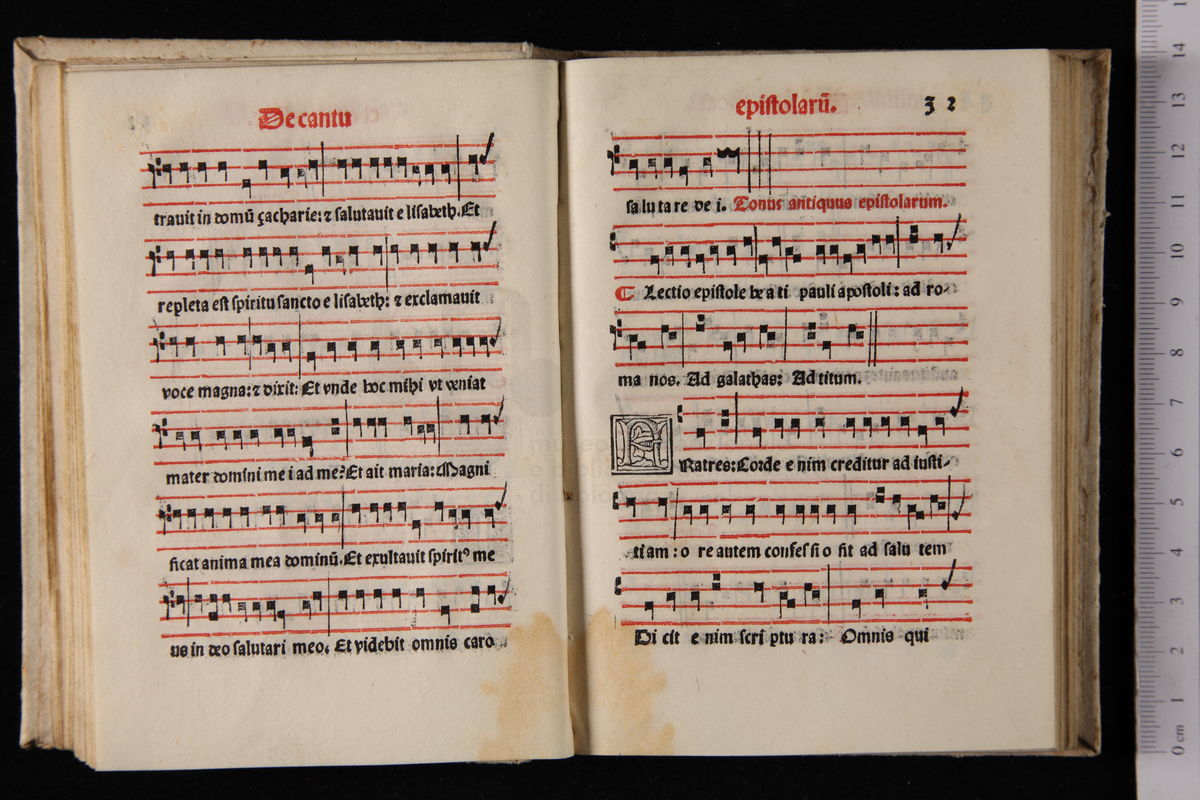 De cantu
trauit in domū çacharie: ⁊ salutauit e lisabeth. Et
repleta est spiritu sancto e lisabeth: ⁊ exclamauit
voce magna: ⁊ dixit: Et vnde hoc mihi vt veniat
mater domini me i ad me? Et ait maria: Magni
ficat anima mea dominū. Et exultauit spiritꝰ me
us in deo salutari meo. Et videbit omnis caro
epistolarū. 32
sa lu ta re de i. Tonus antiquus epistolarum.
Lectio epistole be a ti pauli apostoli: ad ro-
ma nos. Ad galathas: Ad titum.
FRatres: Corde e nim creditur ad iusti-
tiam: o re autem confes si o fit ad salu tem
Di cit e nim scri ptu ra: Omnis qui
museo
e bibli
di bolo
14
13
12
11
10
9
8
7
6
5
4
3
2
1
0 cm